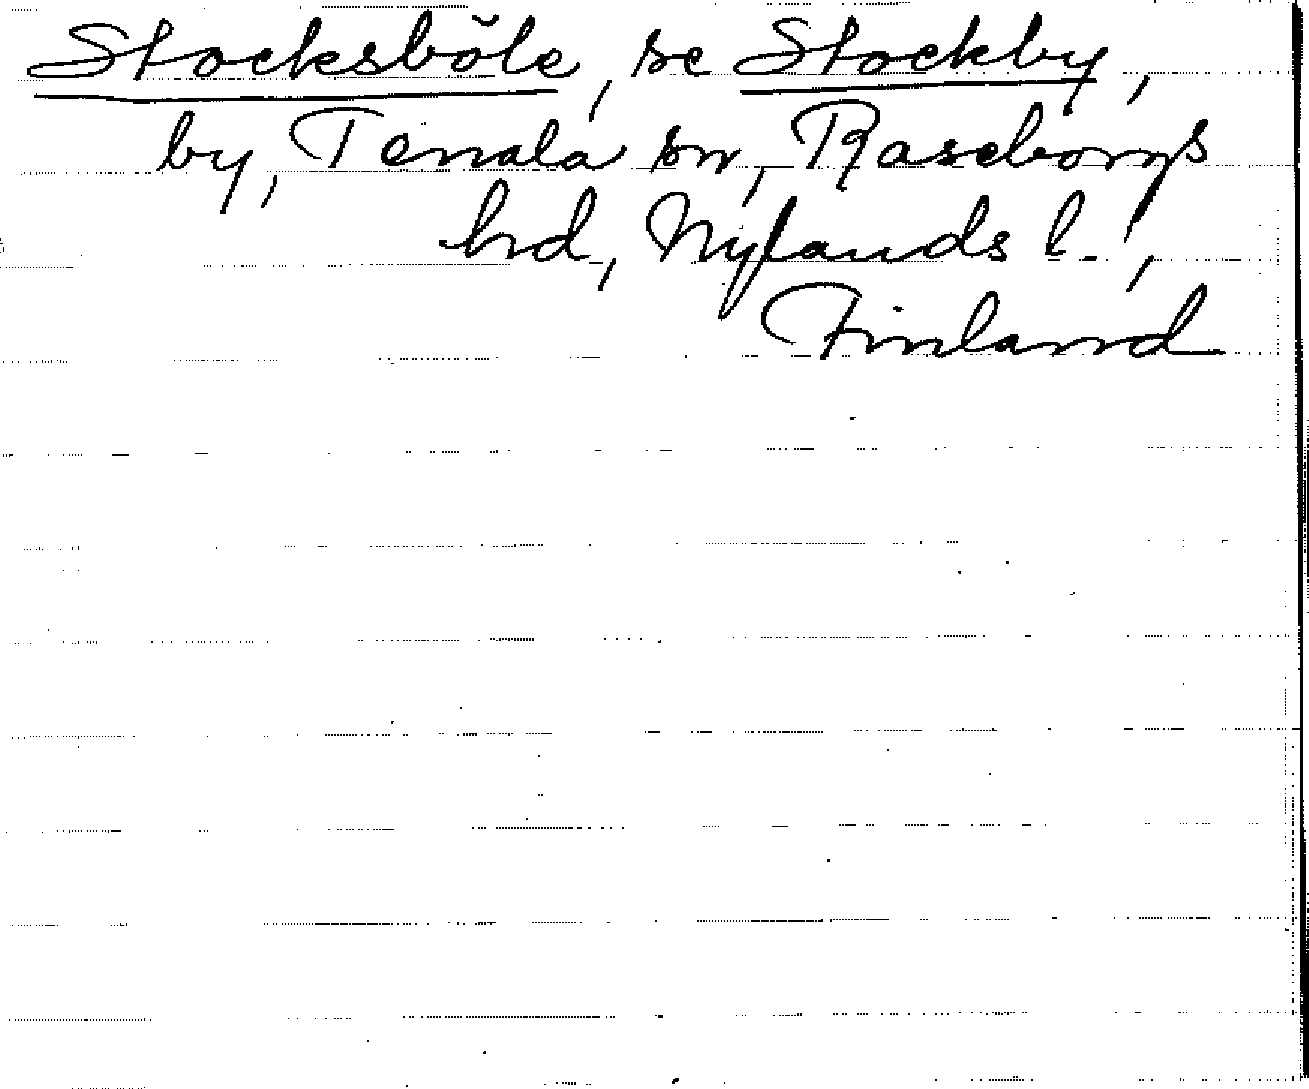 Stocksböle, se Stockby,
by, Tenala sn, Raseborgs
hd, Nylands l.,
Finland